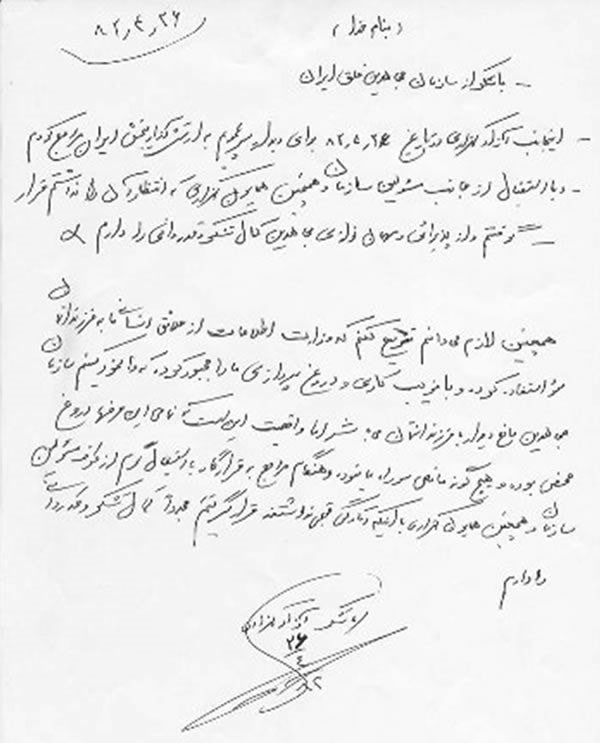 (بنام خدا)
۸۲٫۴٫۲۶
- با تشکر از سازمان مجاهدین خلق ایران
- اینجانب آزاد گلزاری در تاریخ ۸۲٫۴٫۲۶ برای دیدار پسر به ارتش آزادیبخش ایران مراجع کردم
- و با استقبال از جانب مسئولین سازمان و همچنین همایون گلزاری که انتظار آن را نداشتم قرار
گرفتم و از پذیرائی و مهمان نوازی مجاهدین کمال تشکر و قدردانی را دارم
همچنین لازم می دانم تصریح کنم که وزارت اطلاعات از علائق انسانی ما به فرزندانمان
سوء استفاده کرده و با فریب کاری و دروغ پردازی ما را مجبور کرده که وانمود کنیم سازمان
مجاهدین مانع دیدار با فرزندانشان می باشد اما واقعیت این است که تمامی این حرفها دروغ
محض بوده و هیچ گونه مانعی سر راه ما نبوده و هنگام مراجع به قرارگاه با استقبال گرم از طرف مسئولین
سازمان و همچنین همایون گلزاری با آنکه آمادگی قبلی نداشتند قرار گرفتیم مجدداً کمال تشکر و قدردانی
را دارم
با تشکر آزاد گلزاری
۲۶
۴
۸۲